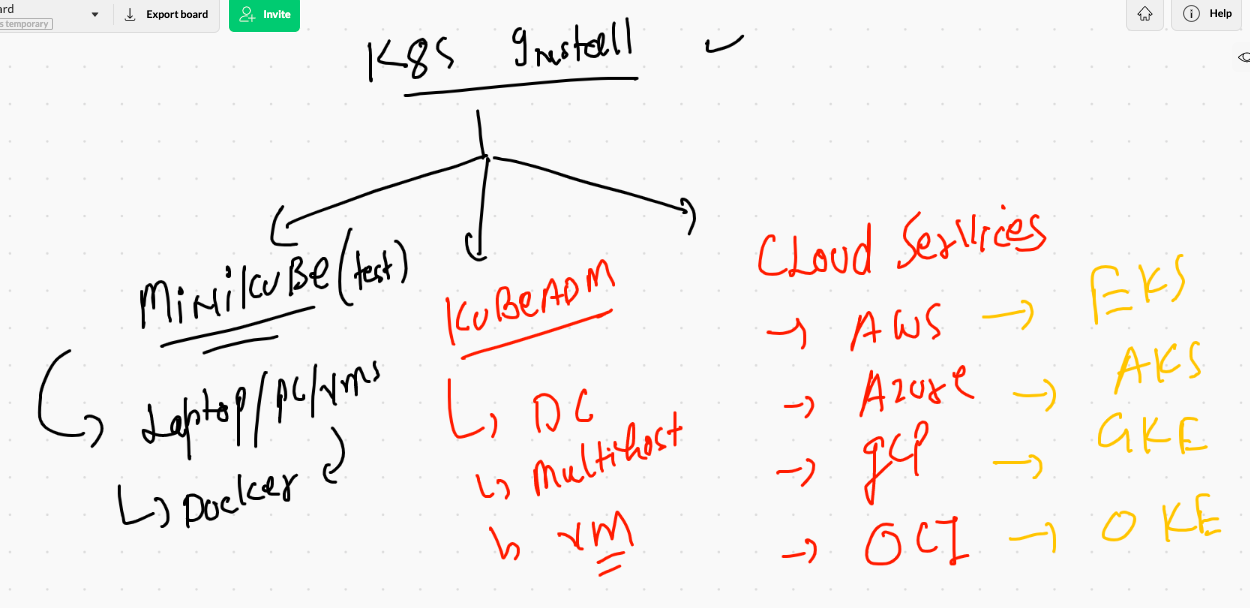 ard
s temporary
Export board
Invite
Help
K8S Install
MiNiKuBe (test)
Laptop/PC/vms
Docker
KuBeADM
DC
Multihost
VM
CLoud Services
AWS → EKS
Azure → AKS
gCP → GKE
OCI → OKE